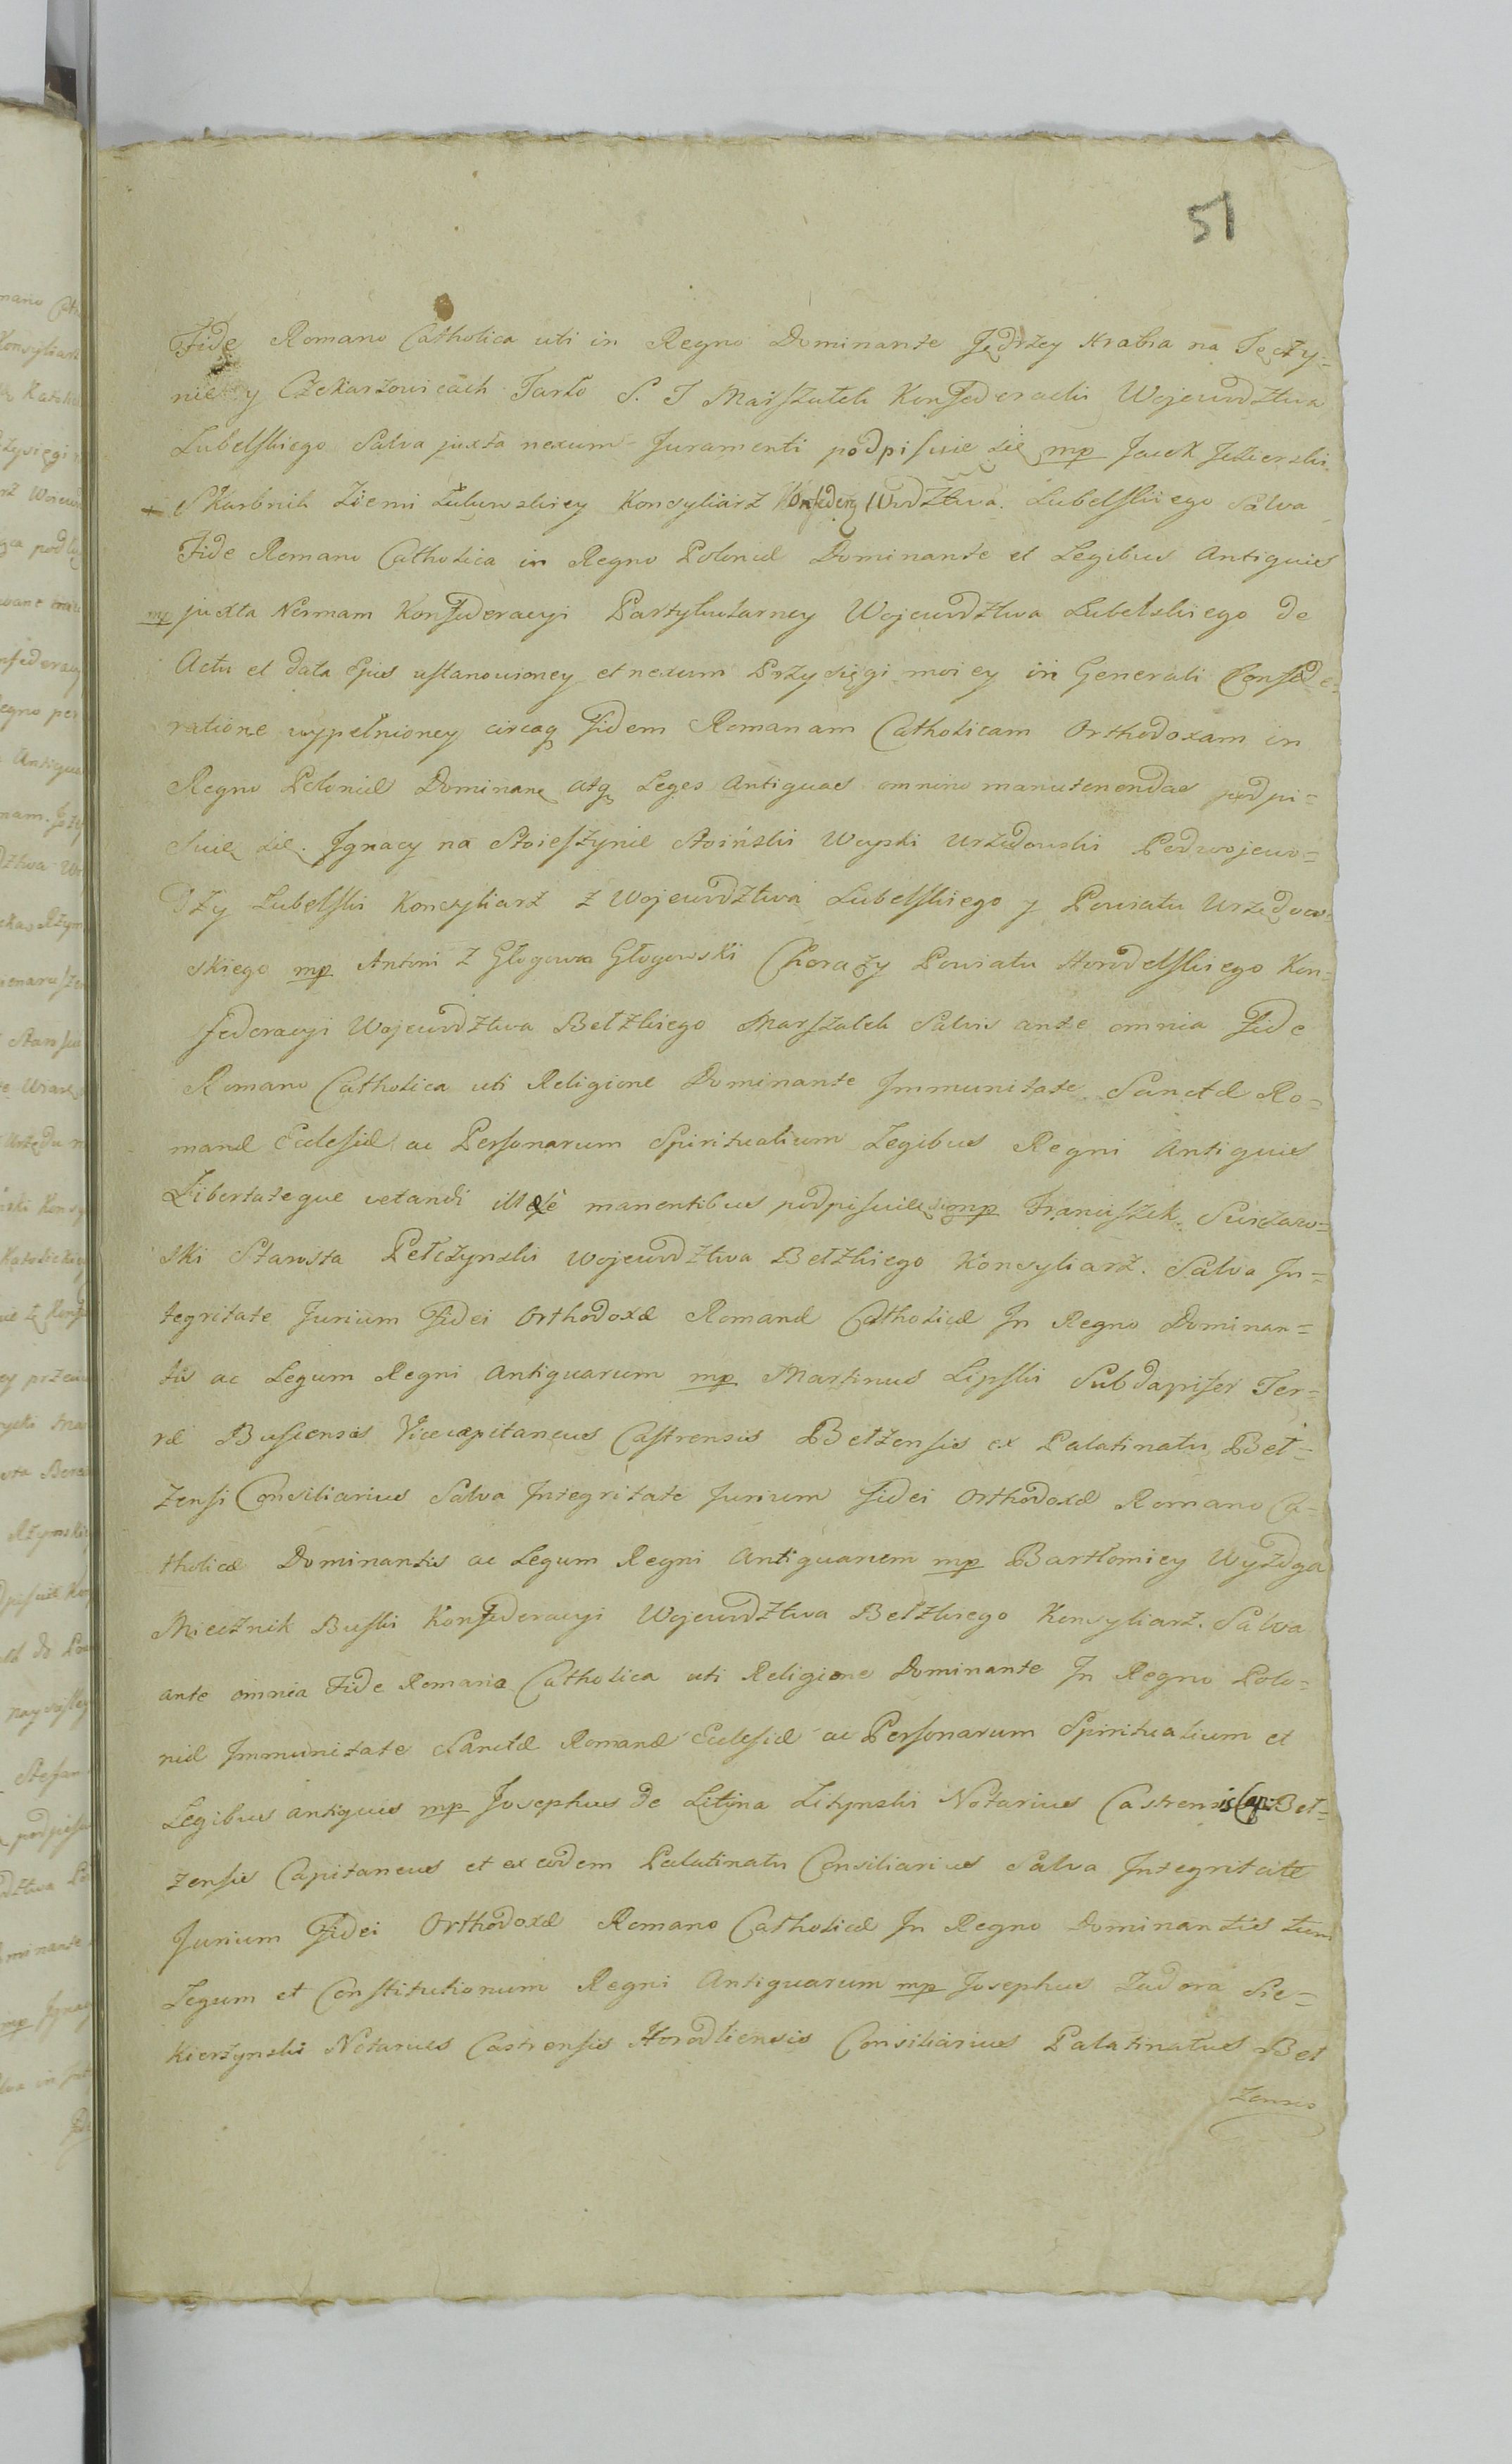 51
Fide Romano Catholica uti in Regno Dominante Jędrzey Hrabia na Tęczy=
nie y Czekarzowicach Tarło S. J Marszałek Konfederacÿi Wojewodztwa
Lubelskiego Salva juxta nexum Juramenti podpisuie się mp Jacek Jezierski
+ Skarbnik Ziemi Łukowskiey Konsyliarz Konfeder Wodztwa Lubelskiego Salva
Fide Romano Catholica in Regno Poloniæ Dominante et Legibus Antiquis
mp juxta Normam Konfederacyi Partykularney Wojewodztwa Lubelskiego de
Actu et data Ejus ustanowioney et nexum Przysięgi moiey in Generali Confede=
ratione wypełnioney circaq Fidem Romanam Catholicam Orthodoxam in
Regno Poloniæ Dominan atq Leges Antiquas omnino manutenendas podpi=
suię się. Ignacy na Stoieszynie Stoiński Woyski Urzędowski Podwojewo=
dzy Lubelski Konsyliarz z Wojewodztwa Lubelskiego y Powiatu Urzędow=
skiego mp Antoni z Głogowa Głogowski Chorąży Powiatu Horodelskiego Kon=
federacyi Wojewodztwa Bełzkiego Marszałek Salvis ante omnia Fide
Romano Catholica uti Religione Dominante Immunitate Sanctæ Ro=
manæ Ecclesiæ ac Personarum Spiritualium Legibus Regni Antiquis
Libertateque vetandi illese manentibus podpisuie się mp Franciszek Surzaw=
ski Starosta Pełczynski Wojewodztwa Bełzkiego Konsyliarz. Salva In=
tegritate Jurium Fidei Orthodoxæ Romanæ Catholicæ In Regno Dominan=
tis ac Legum Regni Antiquarum mp Martinus Lipski Subdapifer Ter=
ræ Buscensis Vicecapitaneus Castrensis Bełzensis ex Palatinatu Beł=
zensi Consiliarius Salva Integritate Jurium fidei Orthodoxæ Romano Ca=
tholicæ Dominantis ac Legum Regni Antiquarum mp Bartłomiey Wyżdga
Miecznik Buski Konfederacyi Wojewodztwa Bełzkiego Konsyliarz. Salva
ante omnia Fide Romana Catholica uti Religione Dominante In Regno Polo=
niæ Immunitate Sanctæ Romanæ Ecclesiæ ac Personarum Spiritualium et
Legibus antiquis mp Josephus de Lityna Lityński Notarius Castrensis Capi Beł=
zensis Capitaneus et ex eodem Palatinatu Consiliarius Salva Integritate
Jurium Fidei Orthodoxæ Romano Catholicæ In Regno Dominantis tum
Legum et Constitutionum Regni Antiquarum mp Josephus Zadora Sie=
kierzynski Notarius Castrensis Horodliensis Consiliarius Palatinatus Beł
zensis